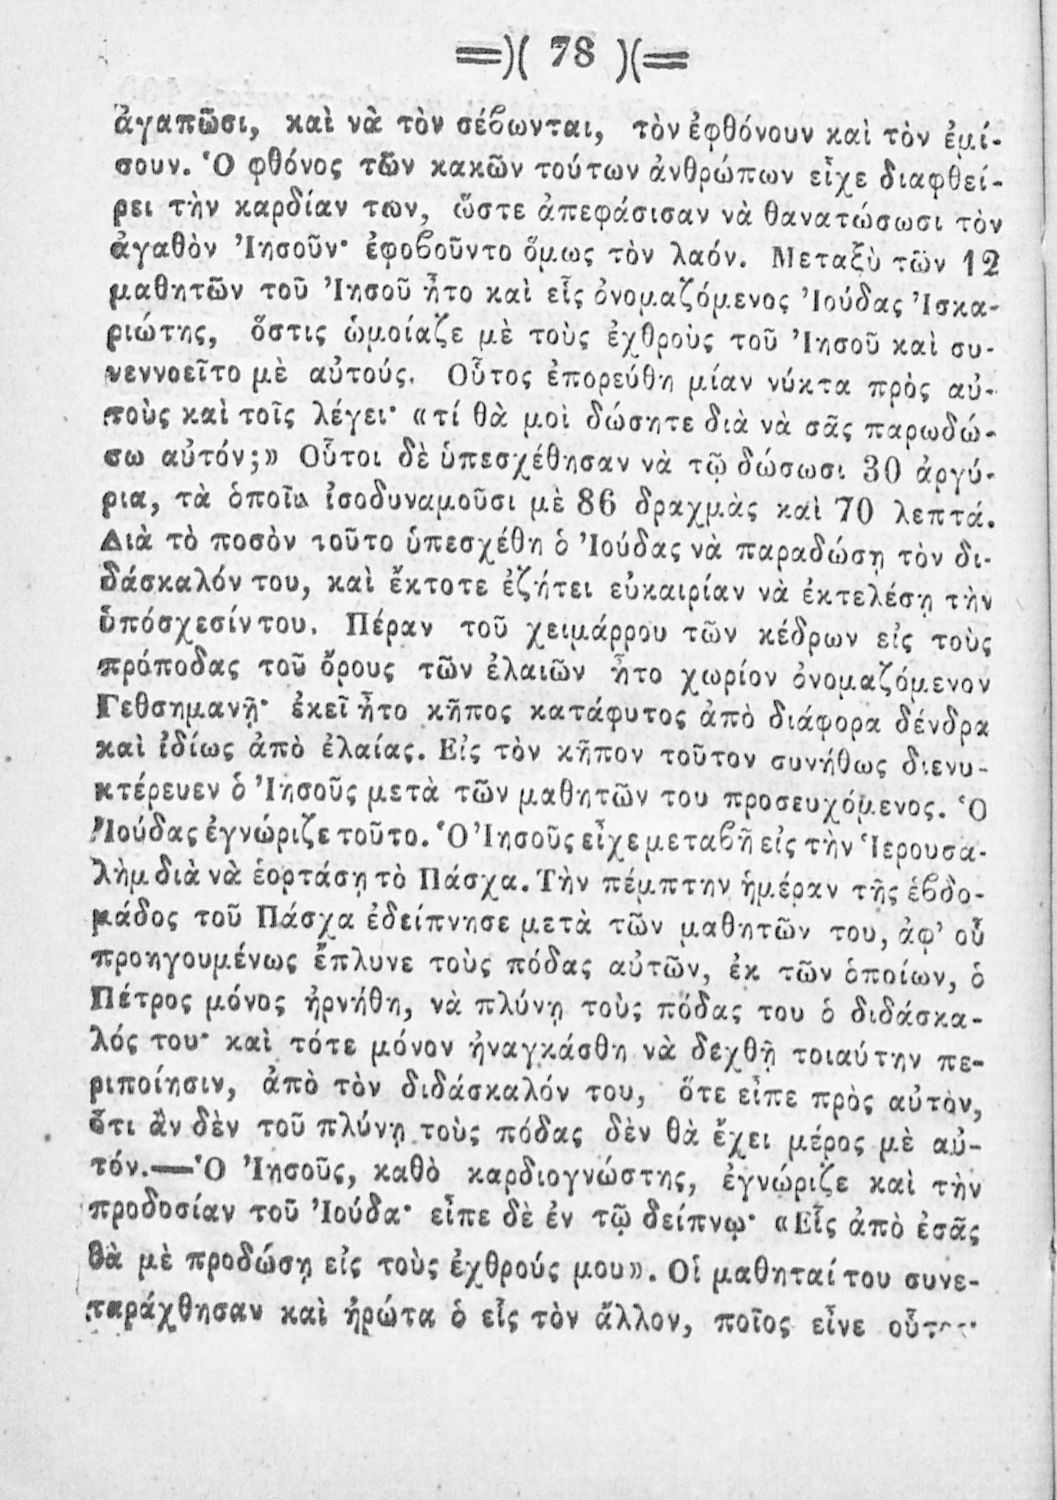 =)( 78 )(=
ἀγαπῶσι, καὶ νὰ τὸν σέβωνται, τὸν ἐφθόνουν καὶ τὸν ἐμί-
σουν. Ὁ φθόνος τῶν κακῶν τούτων ἀνθρώπων εἶχε διαφθεί-
ρει τὴν καρδίαν των, ὥστε ἀπεφάσισαν νὰ θανατώσωσι τὸν
ἀγαθὸν Ἰησοῦν· ἐφοβοῦντο ὅμως τὸν λαόν. Μεταξὺ τῶν 12
μαθητῶν τοῦ Ἰησοῦ ἦτο καὶ εἷς ὀνομαζόμενος Ἰούδας Ἰσκα-
ριώτης, ὅστις ὡμοίαζε μὲ τοὺς ἐχθροὺς τοῦ Ἰησοῦ καὶ συ-
νεννοεῖτο μὲ αὐτούς. Οὗτος ἐπορεύθη μίαν νύκτα πρὸς αὐ-
τοὺς καὶ τοῖς λέγει· «τί θὰ μοὶ δώσητε διὰ νὰ σᾶς παρωδώ-
σω αὐτόν;» Οὗτοι δὲ ὑπεσχέθησαν νὰ τῷ δώσωσι 30 ἀργύ-
ρια, τὰ ὁποῖα ἰσοδυναμοῦσι μὲ 86 δραχμὰς καὶ 70 λεπτά.
Διὰ τὸ ποσὸν τοῦτο ὑπεσχέθη ὁ Ἰούδας νὰ παραδώσῃ τὸν δι-
δάσκαλόν του, καὶ ἔκτοτε ἐζήτει εὐκαιρίαν νὰ ἐκτελέσῃ τὴν
ὑπόσχεσίν του. Πέραν τοῦ χειμάρρου τῶν κέδρων εἰς τοὺς
πρόποδας τοῦ ὄρους τῶν ἐλαιῶν ἦτο χωρίον ὀνομαζόμενον
Γεθσημανῆ· ἐκεῖ ἦτο κῆπος κατάφυτος ἀπὸ διάφορα δένδρα
καὶ ἰδίως ἀπὸ ἐλαίας. Εἰς τὸν κῆπον τοῦτον συνήθως διενυ-
κτέρευεν ὁ Ἰησοῦς μετὰ τῶν μαθητῶν του προσευχόμενος. Ὁ
Ἰούδας ἐγνώριζε τοῦτο. Ὁ Ἰησοῦς εἶχε μεταβῆ εἰς τὴν Ἱερουσα-
λὴμ διὰ νὰ ἑορτάσῃ τὸ Πάσχα. Τὴν πέμπτην ἡμέραν τῆς ἑβδο-
μάδος τοῦ Πάσχα ἐδείπνησε μετὰ τῶν μαθητῶν του, ἀφ’ οὗ
προηγουμένως ἔπλυνε τοὺς πόδας αὐτῶν, ἐκ τῶν ὁποίων, ὁ
Πέτρος μόνος ἠρνήθη, νὰ πλύνῃ τοὺς πόδας του ὁ διδάσκα-
λός του· καὶ τότε μόνον ἠναγκάσθη νὰ δεχθῇ τοιαύτην πε-
ριποίησιν, ἀπὸ τὸν διδάσκαλόν του, ὅτε εἶπε πρὸς αὐτὸν,
ὅτι ἂν δὲν τοῦ πλύνῃ τοὺς πόδας δὲν θὰ ἔχει μέρος μὲ αὐ-
τόν.—Ὁ Ἰησοῦς, καθὸ καρδιογνώστης, ἐγνώριζε καὶ τὴν
προδοσίαν τοῦ Ἰούδα· εἶπε δὲ ἐν τῷ δείπνῳ· «Εἷς ἀπὸ ἐσᾶς
θὰ μὲ προδώσῃ εἰς τοὺς ἐχθρούς μου». Οἱ μαθηταί του συνε-
ταράχθησαν καὶ ἠρώτα ὁ εἷς τὸν ἄλλον, ποῖος εἶνε οὗτος·